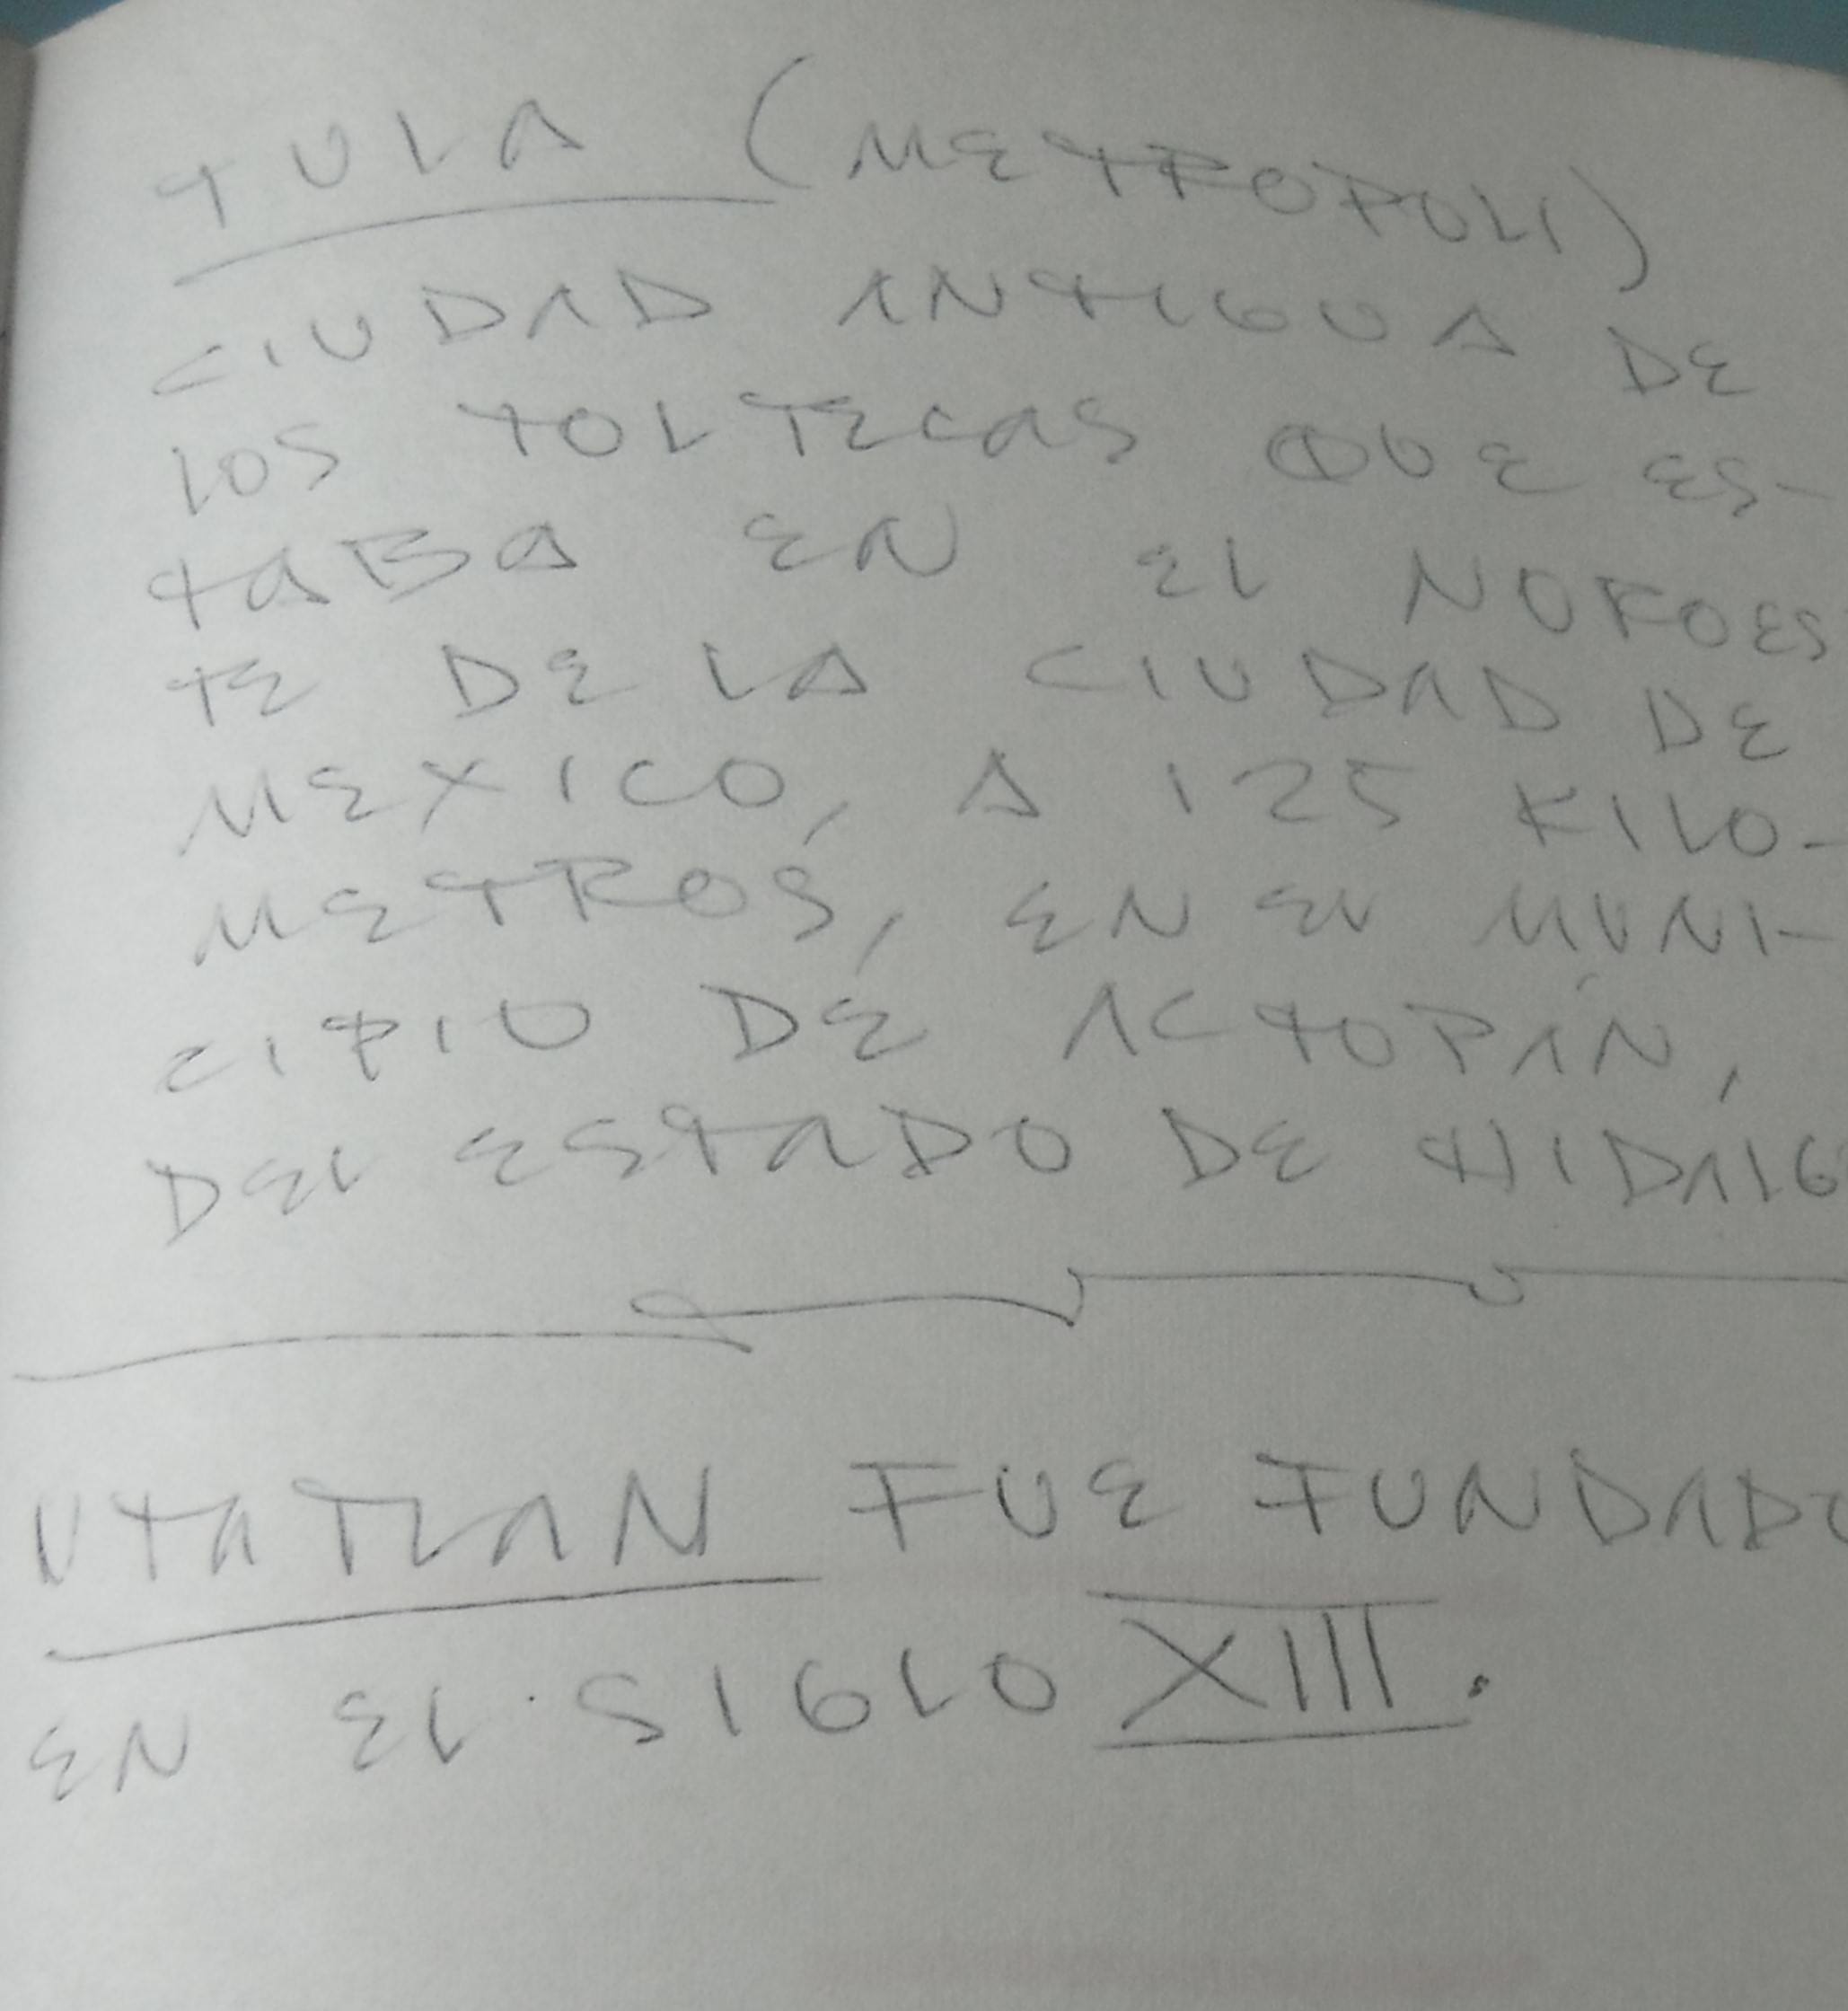 TULA (METROPOLI)
CIUDAD ANTIGUA DE
LOS TOLTECAS QUE ES-
TABA EN EL NOROES
TE DE LA CIUDAD DE
MEXICO, A 125 KILO-
METROS, EN EL MUNI-
CIPIO DE ACTOPÁN,
DEL ESTADO DE HIDALG
UTATLAN FUE FUNDADO
EN EL SIGLO XIII.